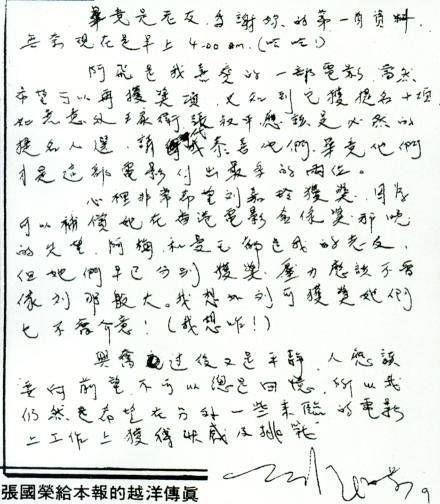 畢竟是老友，多謝妳的第一時資料，
無奈現在是早上4:00am.(哈哈!)
阿飛是我喜愛的一部電影，當然
希望可以再獲獎項，又知到它獲提名十項
如無意外王家衛張叔平應該是必然的
提名人選，請代我恭喜他們，畢竟他們
才是這部電影付出最多的兩位。
心裡非常希望劉嘉玲獲獎，因為
可以補償她在香港電影金像獎那晚
的失望，阿梅和曼玉都是我的老友，
但她們早已分別獲獎，壓力應該不會
像劉那般大。我想如劉可獲獎她們
也不會介意！(我想咋!)
興奮過後又是平靜，人應該
要向前望，不可以總是回憶，所以我
仍然是希望在另外一些來臨的電影
上工作上獲得快感及挑戰
張國榮給本報的越洋傳真